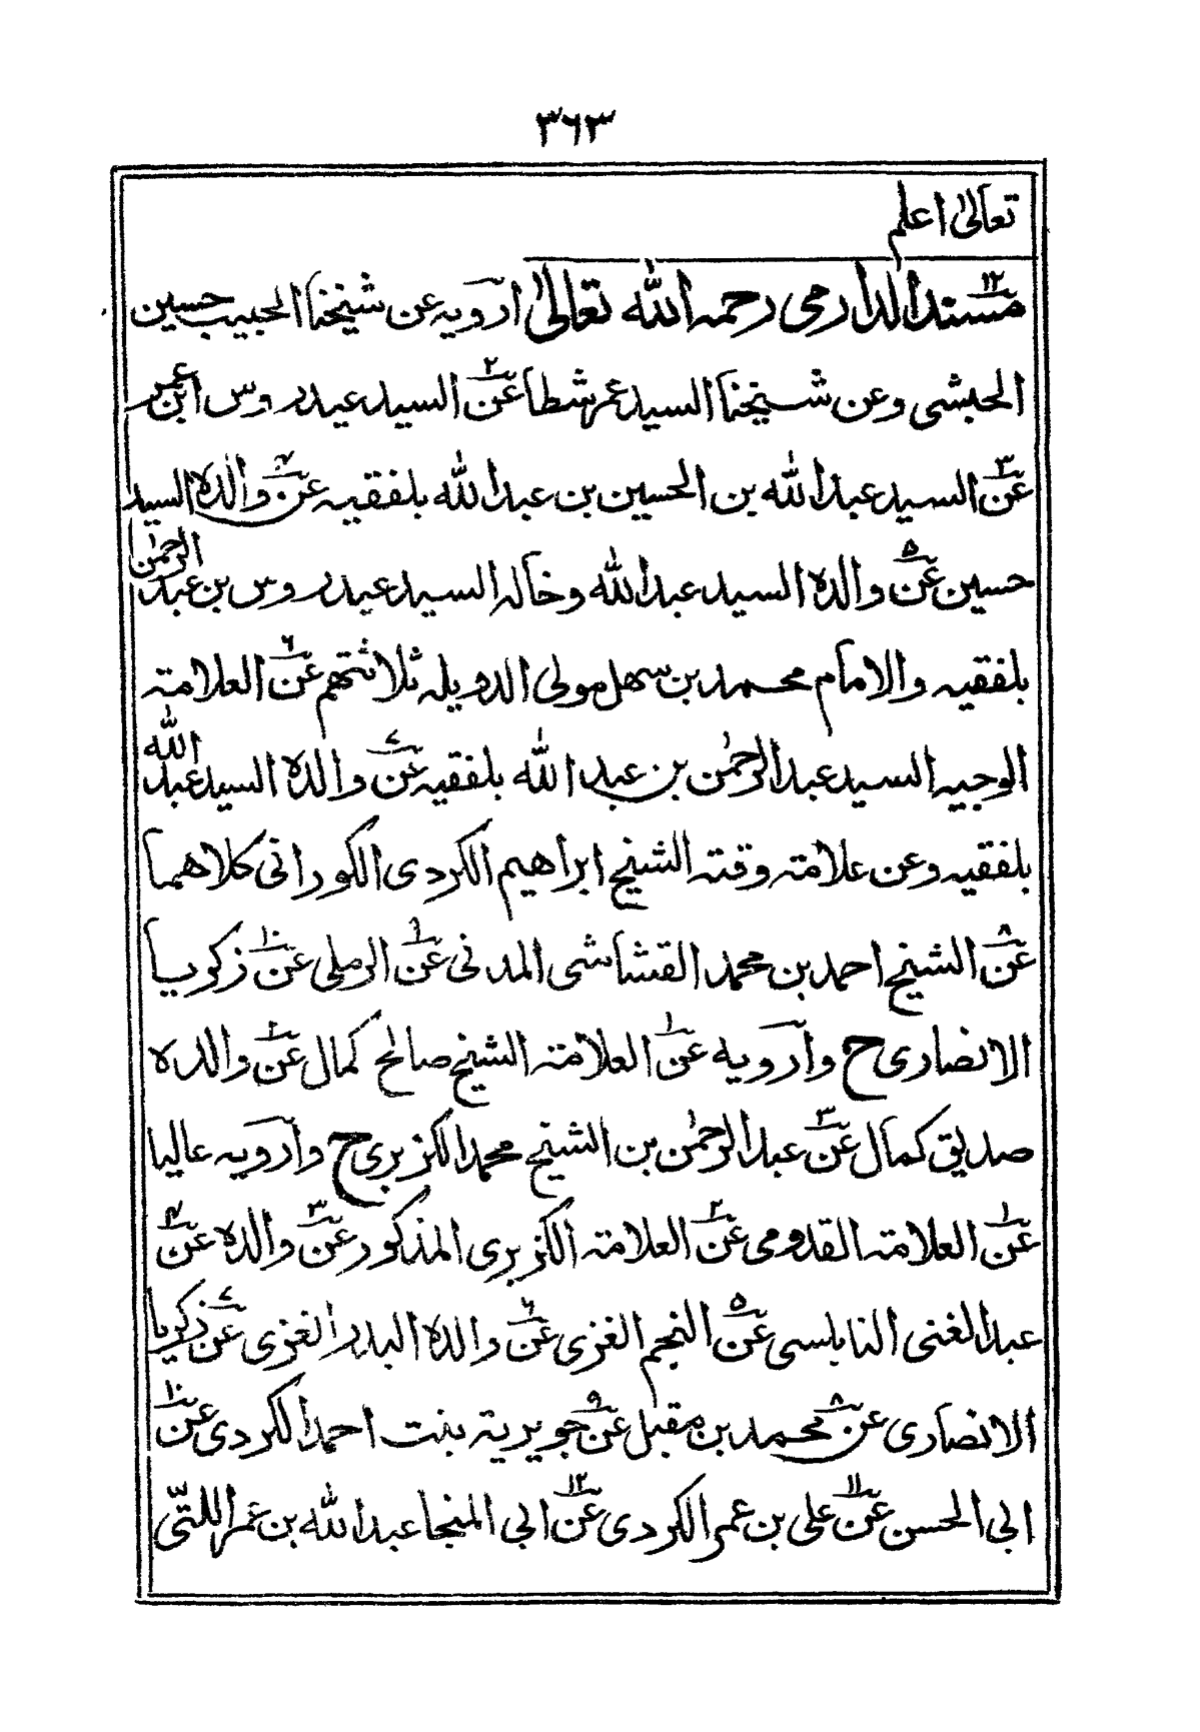 ٣٦٣
تعالىٰ اعلم
مسند الدارمي رحمه الله تعالىٰ ارويه عن شيخنا الحبيب حسين
الحبشي وعن شيخنا السيد عمر شطا عن٢ السيد عيدروس ابن عمر
عن٣ السيد عبد الله بن الحسين بن عبد الله بلفقيه عن٤ والده السيد
حسين عن٥ والده السيد عبد الله وخاله السيد عيدروس بن عبد الرحمٰن
بلفقيه والامام محمد بن سهل مولى الدويله ثلاثتهم عن٦ العلامة
الوجيه السيد عبد الرحمٰن بن عبد الله بلفقيه عن٧ والده السيد عبد الله
بلفقيه وعن علامة وقته الشيخ ابراهيم الكردي الكوراني كلاهما
عن٨ الشيخ احمد بن محمد القشاشي المدني عن٩ الرملي عن١٠ زكريا
الانصاري ح وارويه عن١ العلامة الشيخ صالح كمال عن٢ والده
صديق كمال عن٣ عبد الرحمٰن بن الشيخ محمد الكزبري ح وارويه عاليا
عن١ العلامة القدومي عن٢ العلامة الكزبري المذكور عن٣ والده عن٤
عبد الغني النابلسي عن٥ النجم الغزي عن٦ والده البدر الغزي عن٧ زكريا
الانصاري عن٨ محمد بن مقبل عن٩ جويرية بنت احمد الكردي عن١٠
ابي الحسن عن١١ علي بن عمر الكردي عن١٢ ابي المنجا عبد الله بن عمر اللتّي